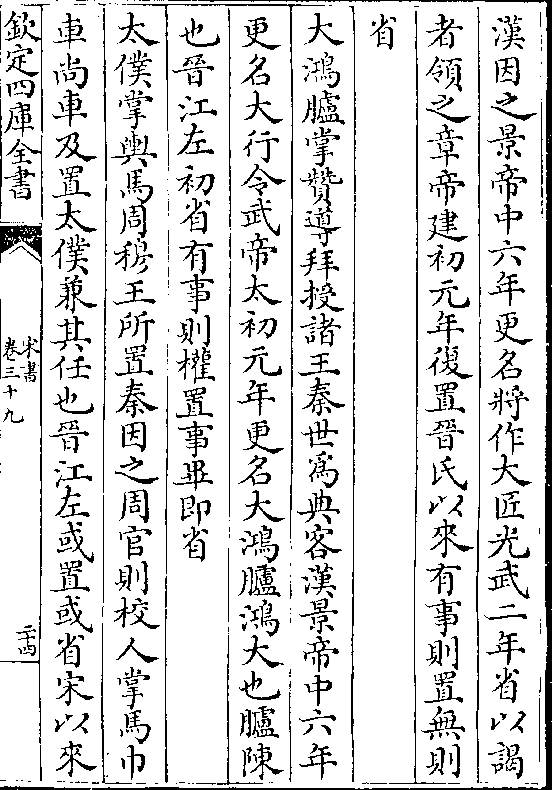 漢因之景帝中六年更名將作大匠光武二年省以謁
者領之章帝建初元年復置晉氏以來有事則置無則
省
大鴻臚掌贊導拜授諸王秦世為典客漢景帝中六年
更名大行令武帝太初元年更名大鴻臚鴻大也臚陳
也晉江左初省有事則權置事畢即省
太僕掌輿馬周穆王所置秦因之周官則校人掌馬巾
車尚車及置太僕兼其任也晉江左或置或省宋以來
欽定四庫全書
宋書
卷三十九
二十四